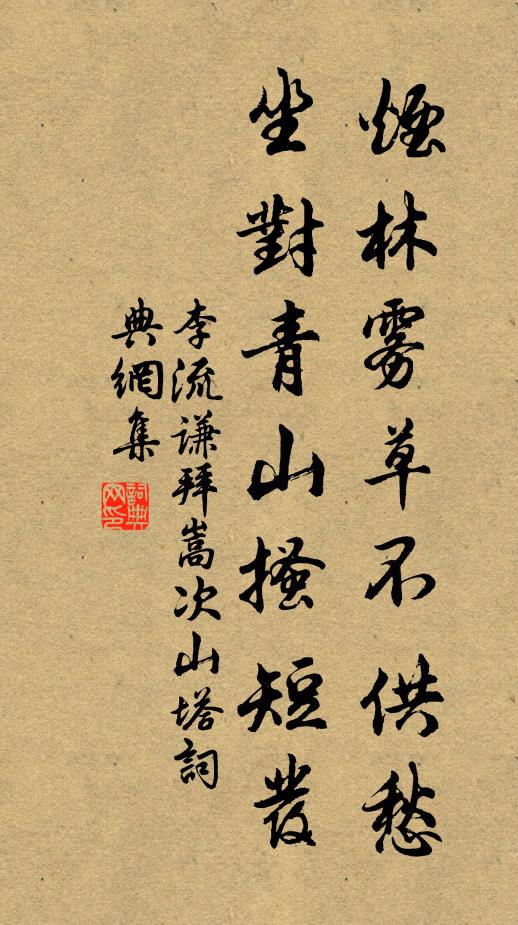 煙林雾草不供愁
坐對青山搔短發
李流谦拜嵩次山塔詞
典網集
詞典網印